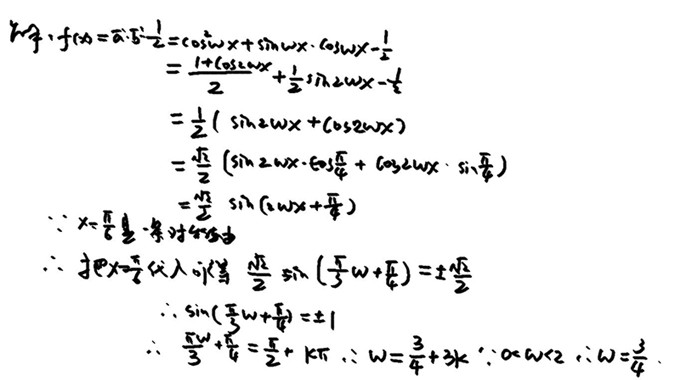 解: f(x) = a·b - 1/2 = cos²wx + sinwx·coswx - 1/2
= (1+cos2wx)/2 + 1/2 sin2wx - 1/2
= 1/2 ( sin2wx + cos2wx )
= √2/2 ( sin2wx·cos π/4 + cos2wx · sin π/4 )
= √2/2 sin(2wx + π/4)
∵ x = π/6 是一条对称轴
∴ 把x=π/6代入可得 √2/2 sin ( π/3 w + π/4 ) = ± √2/2
∴ sin( π/3 w + π/4 ) = ±1
∴ πw/3 + π/4 = π/2 + kπ ∴ w = 3/4 + 3k ∵ 0<w<2 ∴ w = 3/4 .